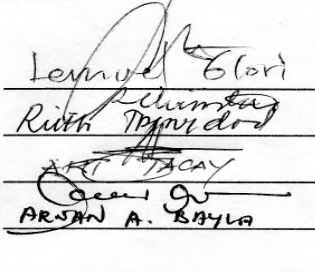 Lemuel Glori
Ruth Trinidad
ART TACAY
ARNAN A. BAYLA